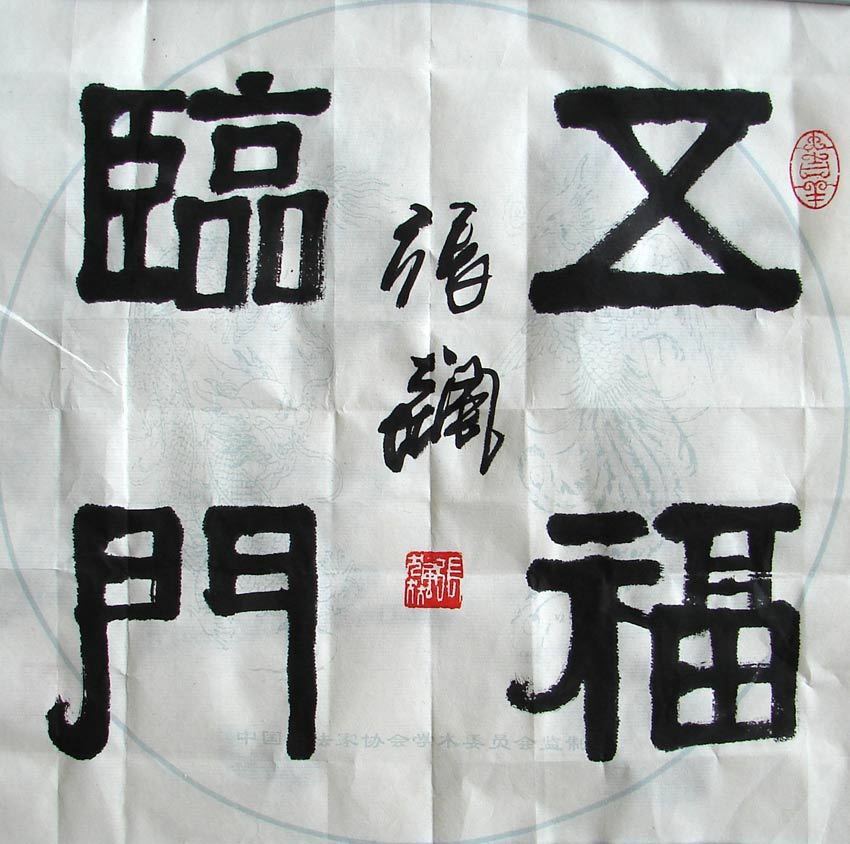 五福
臨門
張飆
中国书法家协会学术委员会监制